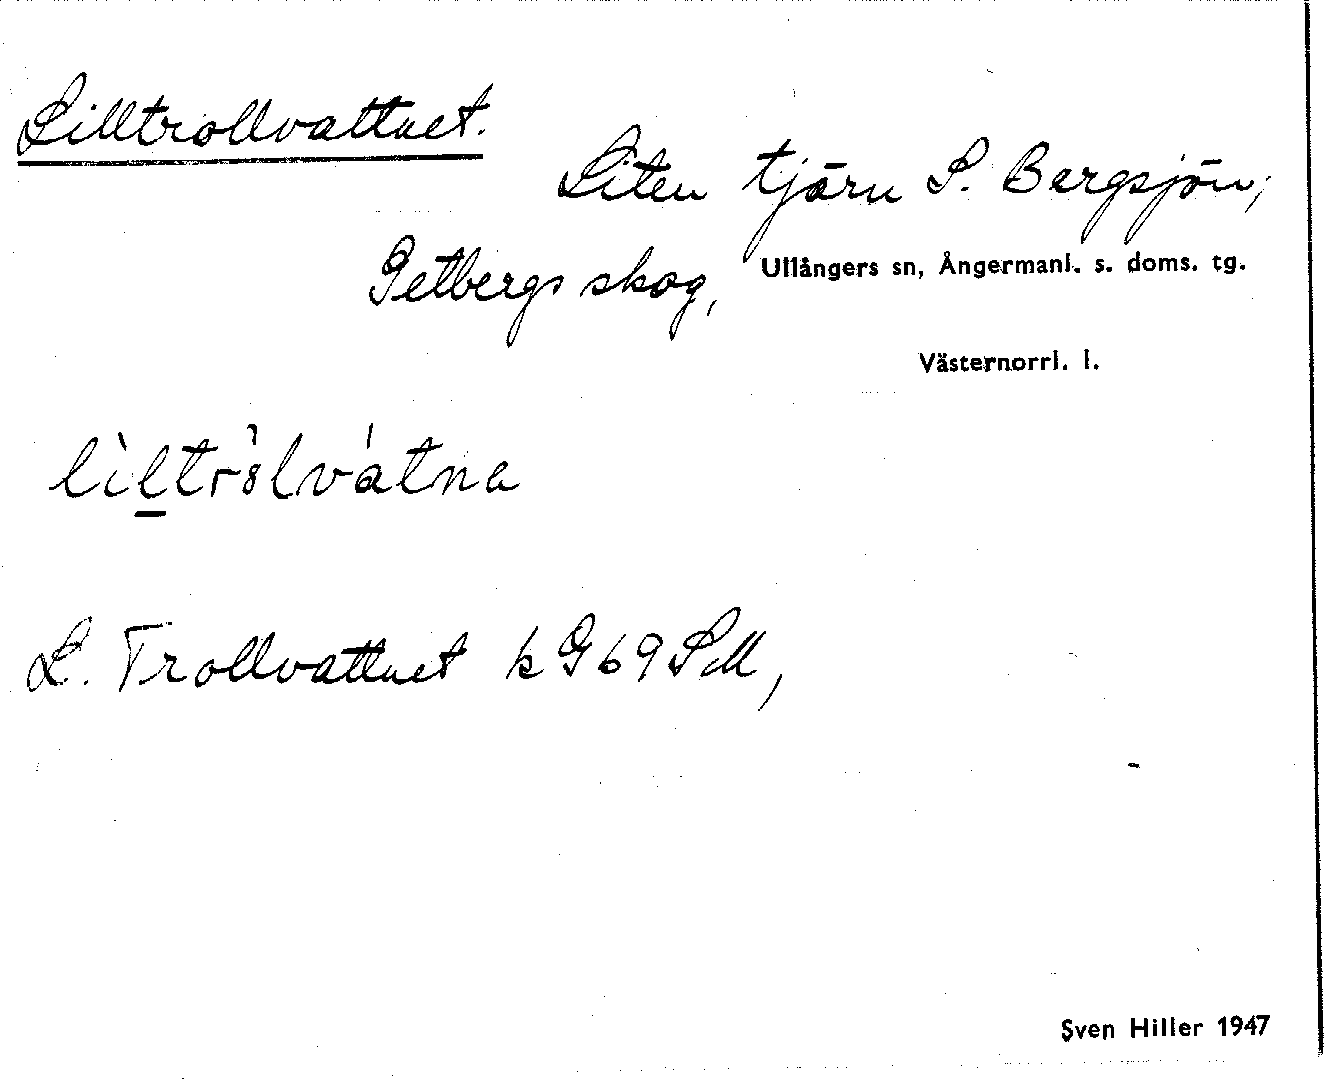 Lilltrollvattnet.
Liten tjärn S. Bergsjön,
Getbergs skog, Ullångers sn, Ångermanl. s. doms. tg.
Västernorrl. l.
L. Trollvattnet k G 69 SM,
Sven Hiller 1947